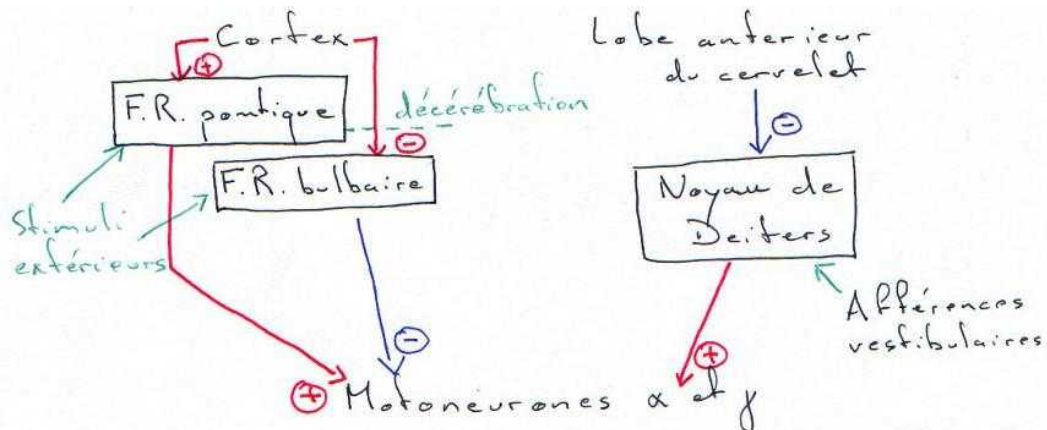 Cortex
+
F.R. pontique
décérébration
-
F.R. bulbaire
Stimuli
extérieurs
-
+ Motoneurones α et γ
Lobe anterieur
du cervelet
-
Noyau de
Deiters
Afférences
vestibulaires
+